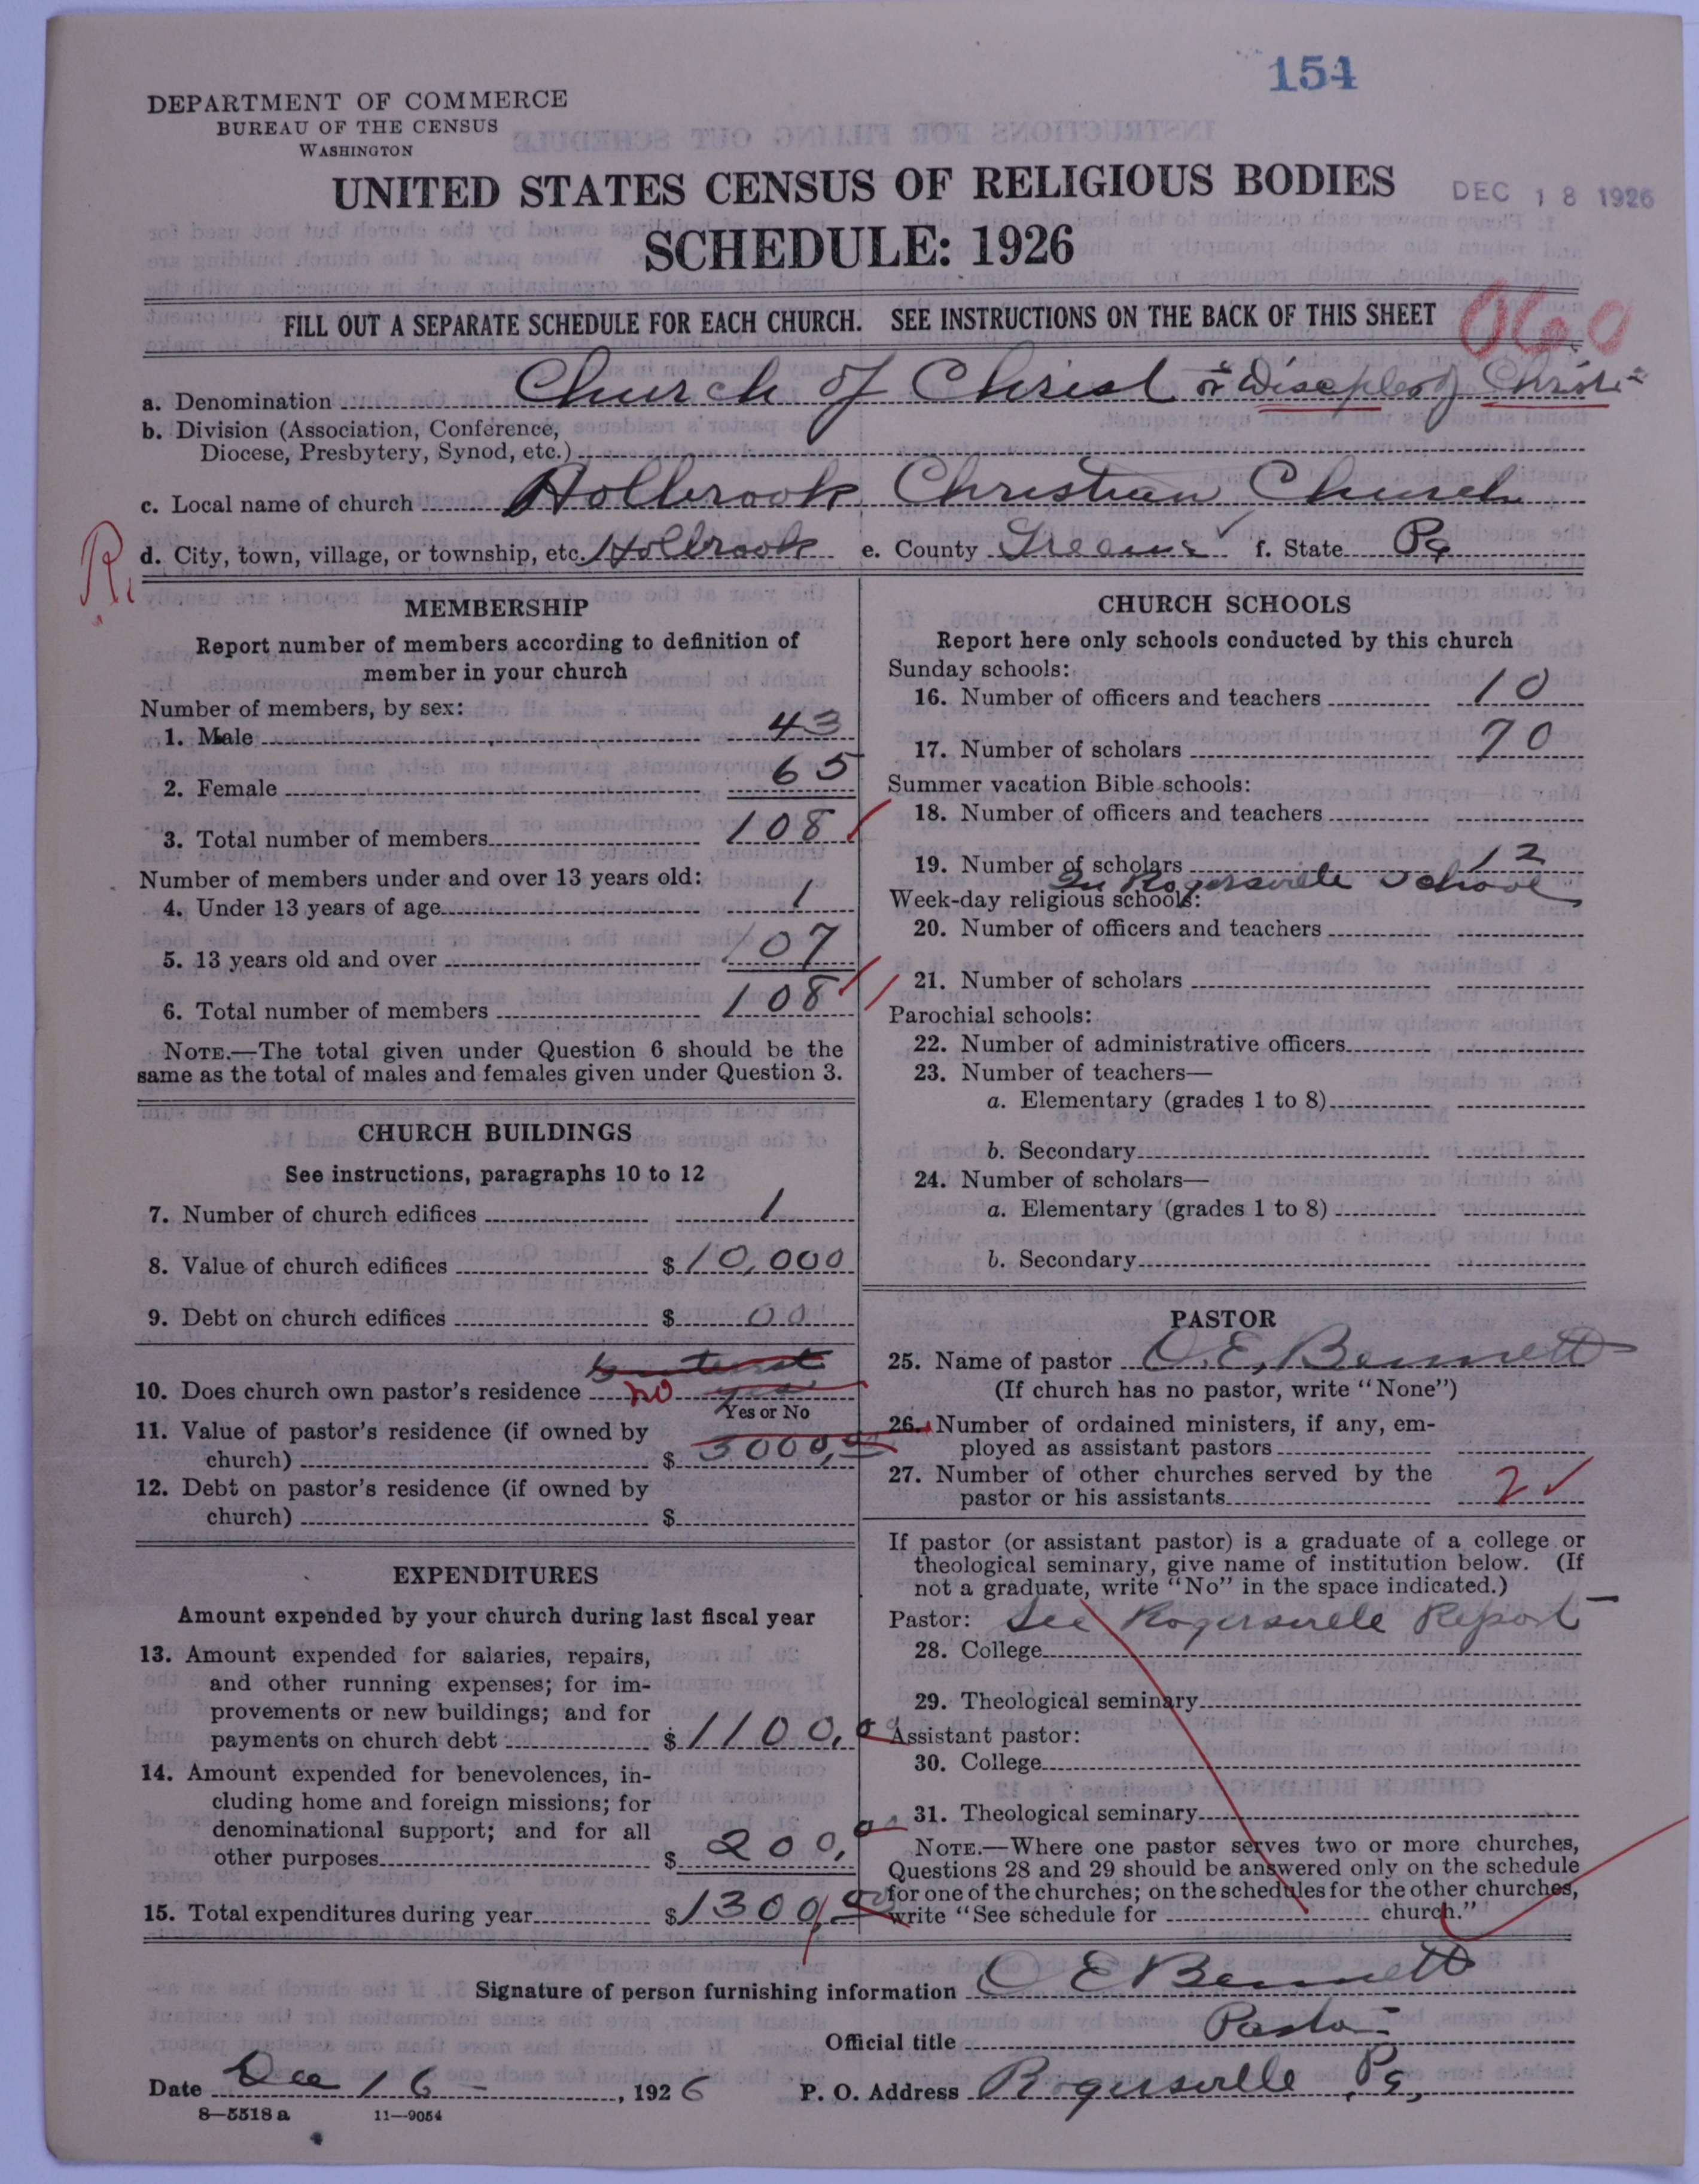 154
DEPARTMENT OF COMMERCE
BUREAU OF THE CENSUS
WASHINGTON
UNITED STATES CENSUS OF RELIGIOUS BODIES
DEC 18 1926
SCHEDULE: 1926
FILL OUT A SEPARATE SCHEDULE FOR EACH CHURCH. SEE INSTRUCTIONS ON THE BACK OF THIS SHEET
060
a. Denomination Church of Christ or Disciples of Christ
b. Division (Association, Conference,
Diocese, Presbytery, Synod, etc.)
c. Local name of church Holbrook Christian Church
R.
d. City, town, village, or township, etc. Holbrook e. County Greene f. State Pa
MEMBERSHIP
Report number of members according to definition of
member in your church
Number of members, by sex:
1. Male 43
2. Female 65
3. Total number of members 108
Number of members under and over 13 years old:
4. Under 13 years of age 1
5. 13 years old and over 107
6. Total number of members 108
NOTE.—The total given under Question 6 should be the
same as the total of males and females given under Question 3.
CHURCH BUILDINGS
See instructions, paragraphs 10 to 12
7. Number of church edifices 1
8. Value of church edifices $ 10,000
9. Debt on church edifices $ 00
10. Does church own pastor's residence no yes
Yes or No
11. Value of pastor's residence (if owned by
church) $ 3000,00
12. Debt on pastor's residence (if owned by
church) $
EXPENDITURES
Amount expended by your church during last fiscal year
13. Amount expended for salaries, repairs,
and other running expenses; for im-
provements or new buildings; and for
payments on church debt $ 1100.00
14. Amount expended for benevolences, in-
cluding home and foreign missions; for
denominational support; and for all
other purposes $ 200.00
15. Total expenditures during year $ 1300.00
CHURCH SCHOOLS
Report here only schools conducted by this church
Sunday schools:
16. Number of officers and teachers 10
17. Number of scholars 70
Summer vacation Bible schools:
18. Number of officers and teachers
19. Number of scholars 12
In Rogersville School
Week-day religious schools:
20. Number of officers and teachers
21. Number of scholars
Parochial schools:
22. Number of administrative officers
23. Number of teachers—
a. Elementary (grades 1 to 8)
b. Secondary
24. Number of scholars—
a. Elementary (grades 1 to 8)
b. Secondary
PASTOR
25. Name of pastor O. E. Bennett
(If church has no pastor, write "None")
26. Number of ordained ministers, if any, em-
ployed as assistant pastors
27. Number of other churches served by the
pastor or his assistants 2
If pastor (or assistant pastor) is a graduate of a college or
theological seminary, give name of institution below. (If
not a graduate, write "No" in the space indicated.)
Pastor: See Rogersville Report
28. College
29. Theological seminary
Assistant pastor:
30. College
31. Theological seminary
NOTE.—Where one pastor serves two or more churches,
Questions 28 and 29 should be answered only on the schedule
for one of the churches; on the schedules for the other churches,
write "See schedule for church."
Signature of person furnishing information O E Bennett
Official title Pastor
Date Dec 16 , 1926 P. O. Address Rogersville, Pa,
8—5518 a 11—9054